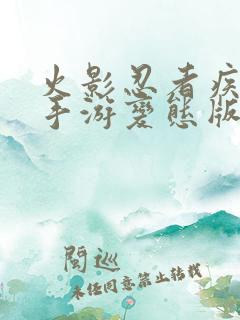 火影忍者疾
手游变态版
閱巡
未任同意禁止转载